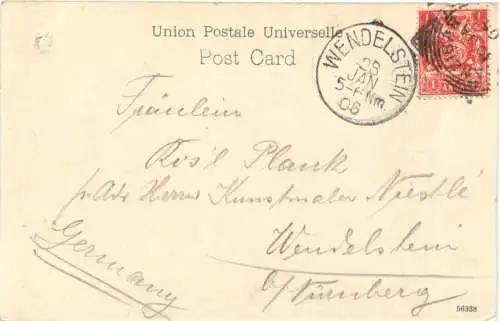 Union Postale Universelle
Post Card
WENDELSTEIN
26
JAN
5-6 Nm.
06
Fräulein
Ros'l Plank
p. Adr. Herrn Kunstmaler Niestlé
Wendelstein
b/Nürnberg
Germany
56938